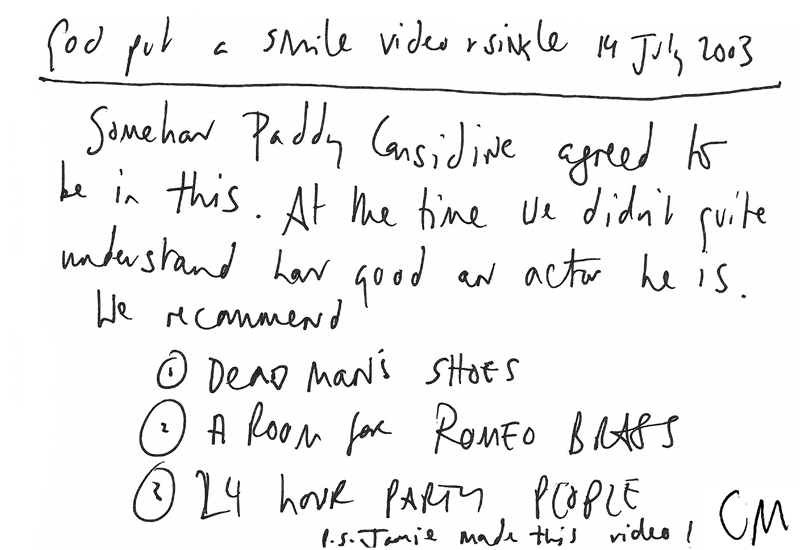 God put a smile video + single 14 July 2003
Somehow Paddy Considine agreed to
be in this. At the time we didn't quite
understand how good an actor he is.
We recommend
① DEAD MAN'S SHOES
② A ROOM for ROMEO BRASS
③ 24 HOUR PARTY PEOPLE
P.S. Jamie made this video! CM